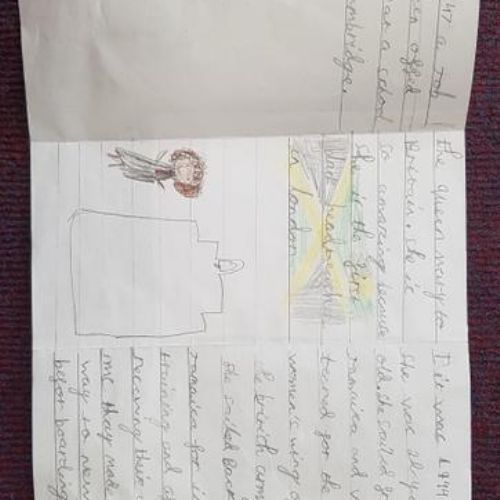 47 a job
offed
an a school
mbridge.
the queen mary to
Britain. she is
so amazing because
she is the first
black headteacher
in london
It was 1944
she was only
old she sailed
Jamaica and
bound for the
women's wing
british arm
She sailed back
Jamaica for
training and
receiving their
me they made
way to new
befor boarding